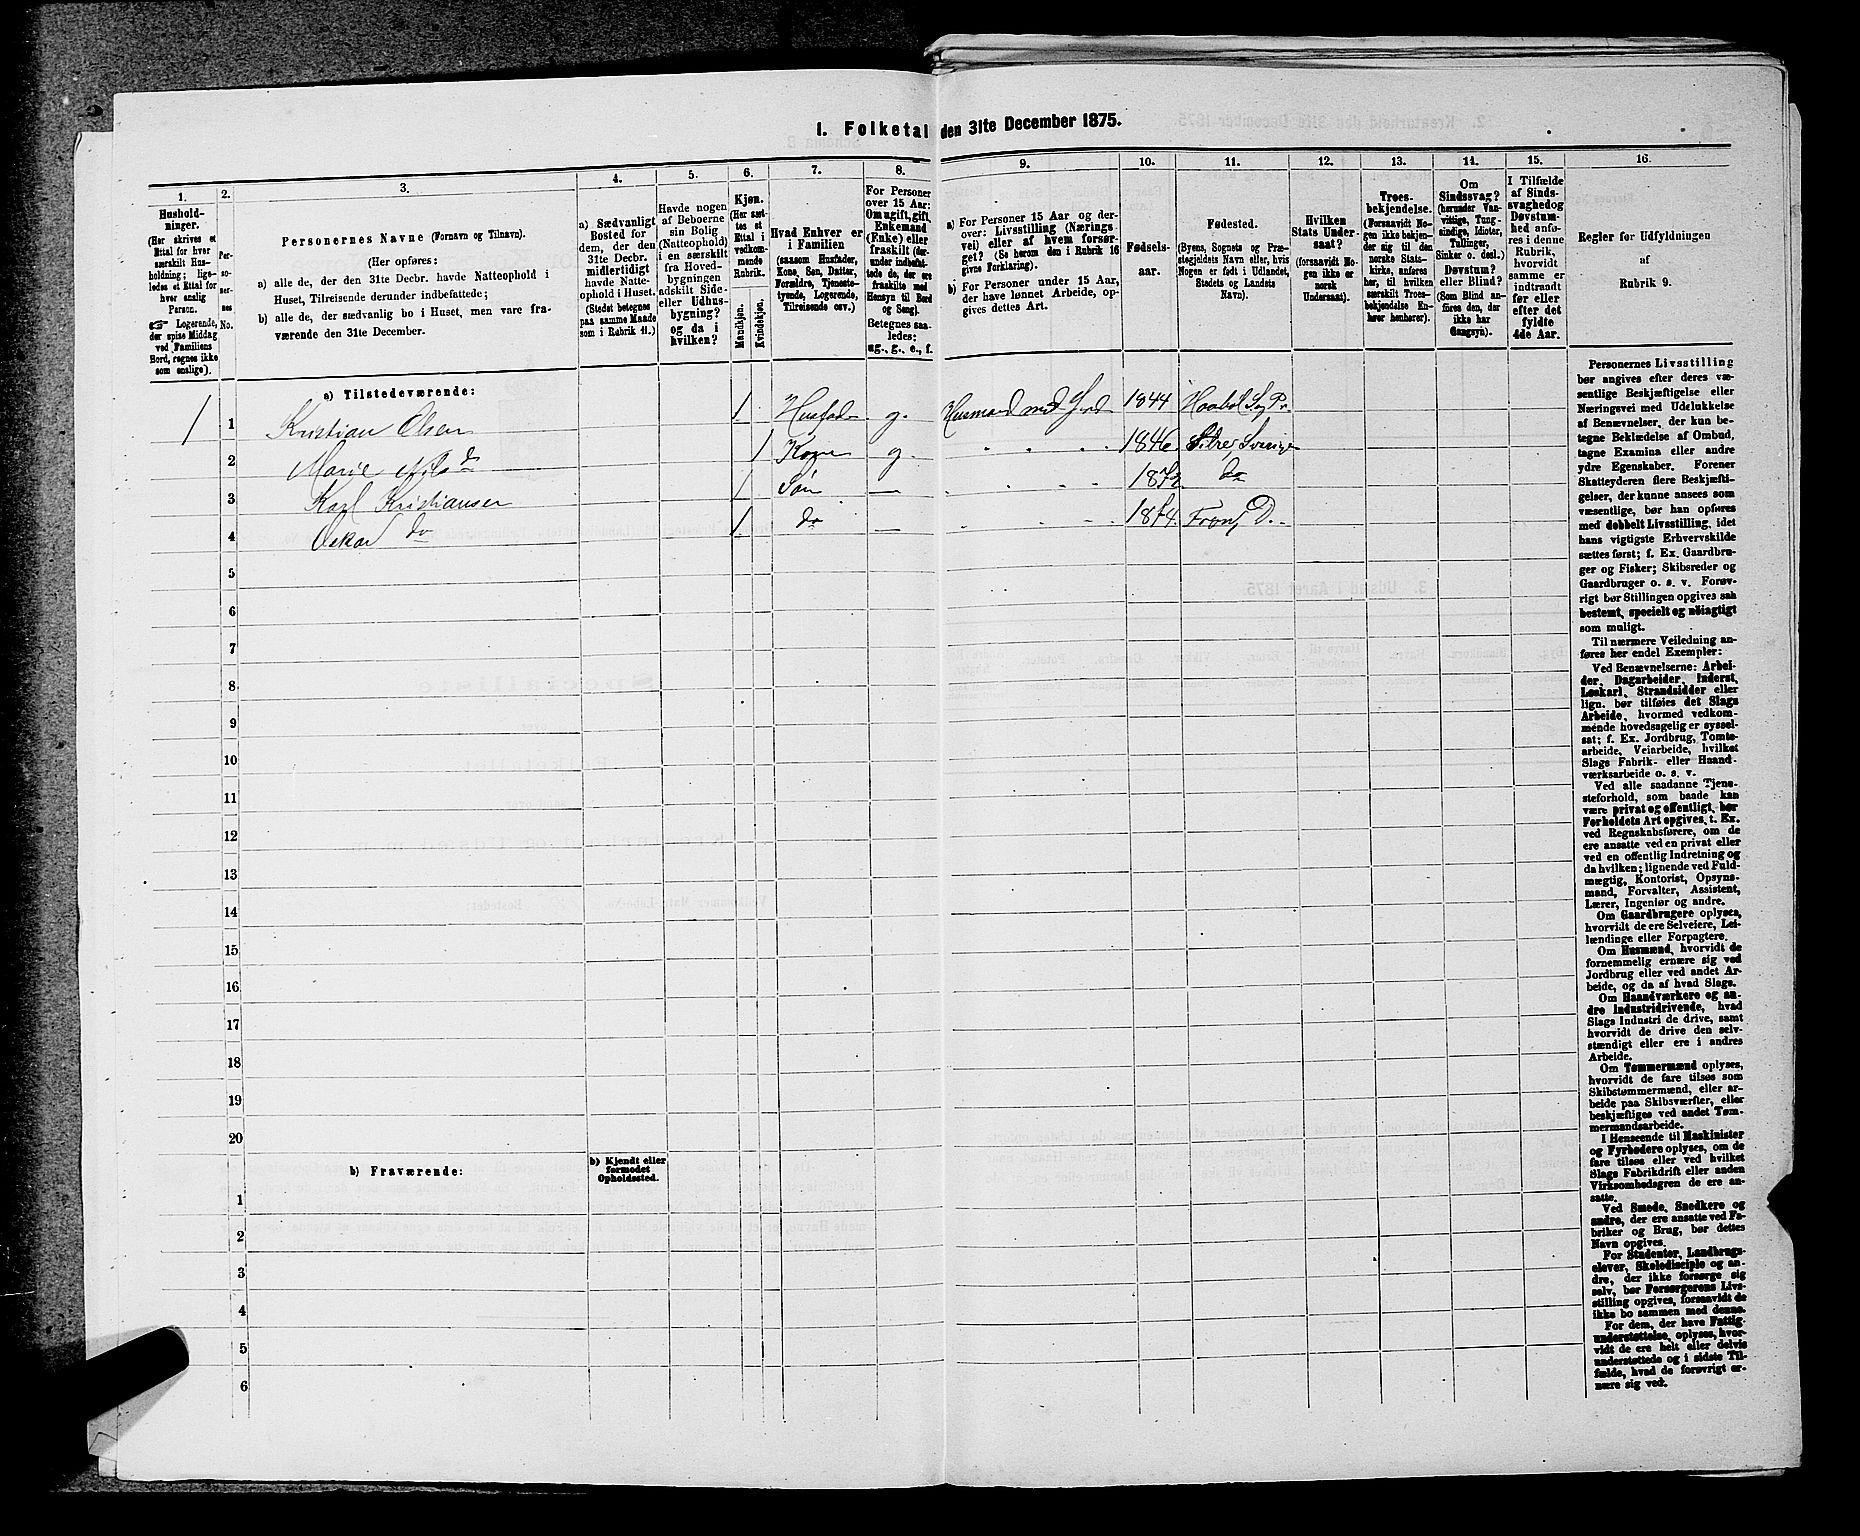 I. Folketal den 31te December 1875.
1.
Hushold-
ninger.
(Her skrives et
Ettal for hver
særskilt Hus-
holdning; lige-
ledes et Ettal for
hver enslig
Person.
☞ Logerende,
der spise Middag
ved Familiens
Bord, regnes ikke
som enslige).
2.
Per-
so-
ner-
nes
No.
3.
Personernes Navne (Fornavn og Tilnavn).
(Her opføres:
a) alle de, der den 31te Decbr. havde Natteophold i
Huset, Tilreisende derunder indbefattede;
b) alle de, der sædvanlig bo i Huset, men vare fra-
værende den 31te December.
4.
a) Sædvanligt
Bosted for
dem, der den
31te Decbr.
midlertidigt
havde Natte-
ophold i Huset.
(Stedet betegnes
paa samme Maade
som i Rubrik 11.)
5.
Havde nogen
af Beboerne
sin Bolig
(Natteophold)
i en særskilt
fra Hoved-
bygningen
adskilt Side-
eller Udhus-
bygning?
og da i
hvilken?
6.
Kjøn.
(Her sæt-
tes et
Ettal i
vedkom-
mende
Rubrik.
Mandkjøn.
Kvindekjøn.
7.
Hvad Enhver er
i Familien
(saasom Husfader,
Kone, Søn, Datter,
Forældre, Tjeneste-
tyende, Logerende,
Tilreisende osv.)
8.
For Personer
over 15 Aar:
Om ugift, gift,
Enkemand
(Enke) eller
fraskilt (der-
under indbefat-
tede de, der ere
fraskilte med
Hensyn til Bord
og Seng).
Betegnes saa-
ledes:
ug., g., e., f.
9.
a) For Personer 15 Aar og der-
over: Livsstilling (Nærings-
vei) eller af hvem forsør-
get? (Se herom den i Rubrik 16
givne Forklaring).
b) For Personer under 15 Aar,
der have lønnet Arbeide, op-
gives dettes Art.
10.
Fødsels-
aar.
11.
Fødested.
(Byens, Sognets og Præ-
stegjeldets Navn eller, hvis
Nogen er født i Udlandet,
Stedets og Landets
Navn).
12.
Hvilken
Stats Under-
saat?
(forsaavidt No-
gen ikke er
norsk
Undersaat).
13.
Troes-
bekjendelse.
(Forsaavidt No-
gen ikke bekjen-
der sig til den
norske Stats-
kirke, anføres
her, til hvilken
særskilt Troes-
bekjendelse En-
hver henhører).
14.
Om
Sindssvag?
(herunder Van-
vittige, Tung-
sindige, Idioter,
Tullinger,
Sinker o. desl.)
Døvstum?
eller Blind?
(Som Blind an-
føres den, der
ikke har
Gangsyn).
15.
I Tilfælde
af Sinds-
svaghed og
Døvstum-
hed anfø-
res i denne
Rubrik,
hvorvidt
samme er
indtraadt
før eller
efter det
fyldte
4de Aar.
16.
Regler for Udfyldningen
af
Rubrik 9.
a) Tilstedeværende:
1 1 Kristian Olsen 1 Husfader g. Husmand med Jord 1844 Haabøl Sog Pr.
2 Marie Nilsd 1 Kone g. " " " 1846 Silre, Sverige
3 Karl Kristiansen 1 Søn — " " " " 1872 do
4 Oskar do 1 do — " " " 1874. Trons D.
5
6
7
8
9
10
11
12
13
14
15
16
17
18
19
20
b) Fraværende:
b) Kjendt eller
formodet
Opholdssted.
1
2
3
4
5
6
Personernes Livsstilling
bør angives efter deres væ-
sentlige Beskjæftigelse eller
Næringsvei med Udelukkelse
af Benævnelser, der kun be-
tegne Beklædelse af Ombud,
tagne Examina eller andre
ydre Egenskaber. Forener
Skatteyderen flere Beskjæfti-
gelser, der kunne ansees som
væsentlige, bør han opføres
med dobbelt Livsstilling, idet
hans vigtigste Erhvervskilde
sættes først; f. Ex. Gaardbru-
ger og Fisker; Skibsreder og
Gaardbruger o. s. v. Forøv-
rigt bør Stillingen opgives saa
bestemt, specielt og nøiagtigt
som muligt.
Til nærmere Veiledning an-
føres her endel Exempler:
Ved Benævnelserne: Arbei-
der, Dagarbeider, Inderst,
Løskarl, Strandsidder eller
lign. bør tilføies det Slags
Arbeide, hvormed vedkom-
mende hovedsagelig er syssel-
sat; f. Ex. Jordbrug, Tomte-
arbeide, Veiarbeide, hvilket
Slags Fabrik- eller Haand-
værksarbeide o. s. v.
Ved alle saadanne Tjene-
steforhold, som baade kan
være privat og offentligt, bør
Forholdets Art opgives, t. Ex.
ved Regnskabsførere, om de
ere ansatte ved en privat eller
ved en offentlig Indretning og
da hvilken; lignende ved Fuld-
mægtig, Kontorist, Opsyns-
mand, Forvalter, Assistent,
Lærer, Ingeniør og andre.
Om Gaardbrugere oplyses,
hvorvidt de ere Selveiere, Lei-
lændinge eller Forpagtere.
Om Husmænd, hvorvidt de
fornemmelig ernære sig ved
Jordbrug eller ved andet Ar-
beide, og da af hvad Slags.
Om Haandværkere og an-
dre Industridrivende, hvad
Slags Industri de drive, samt
hvorvidt de drive den selv-
stændigt eller ere i andres
Arbeide.
Om Tømmermænd oplyses,
hvorvidt de fare tilsøs som
Skibstømmermænd, eller ar-
beide paa Skibsværfter, eller
beskjæftiges ved andet Tøm-
mermandsarbeide.
I Henseende til Maskinister
og Fyrbødere oplyses, om de
fare tilsøs eller ved hvilket
Slags Fabrikdrift eller anden
Virksomhedsgren de ere an-
satte.
Ved Smede, Snedkere og
andre, der ere ansatte ved Fa-
briker og Brug, bør dettes
Navn opgives.
For Studenter, Landbrugs-
elever, Skoledisciple og an-
dre, der ikke forsørge sig
selv, bør Forsørgerens Livs-
stilling opgives, forsaavidt de
ikke bo sammen med denne.
For dem, der have Fattig-
understøttelse, oplyses, hvor-
vidt de ere helt eller delvis
understøttede og i sidste Til-
fælde, hvad de forøvrigt er-
nære sig ved.